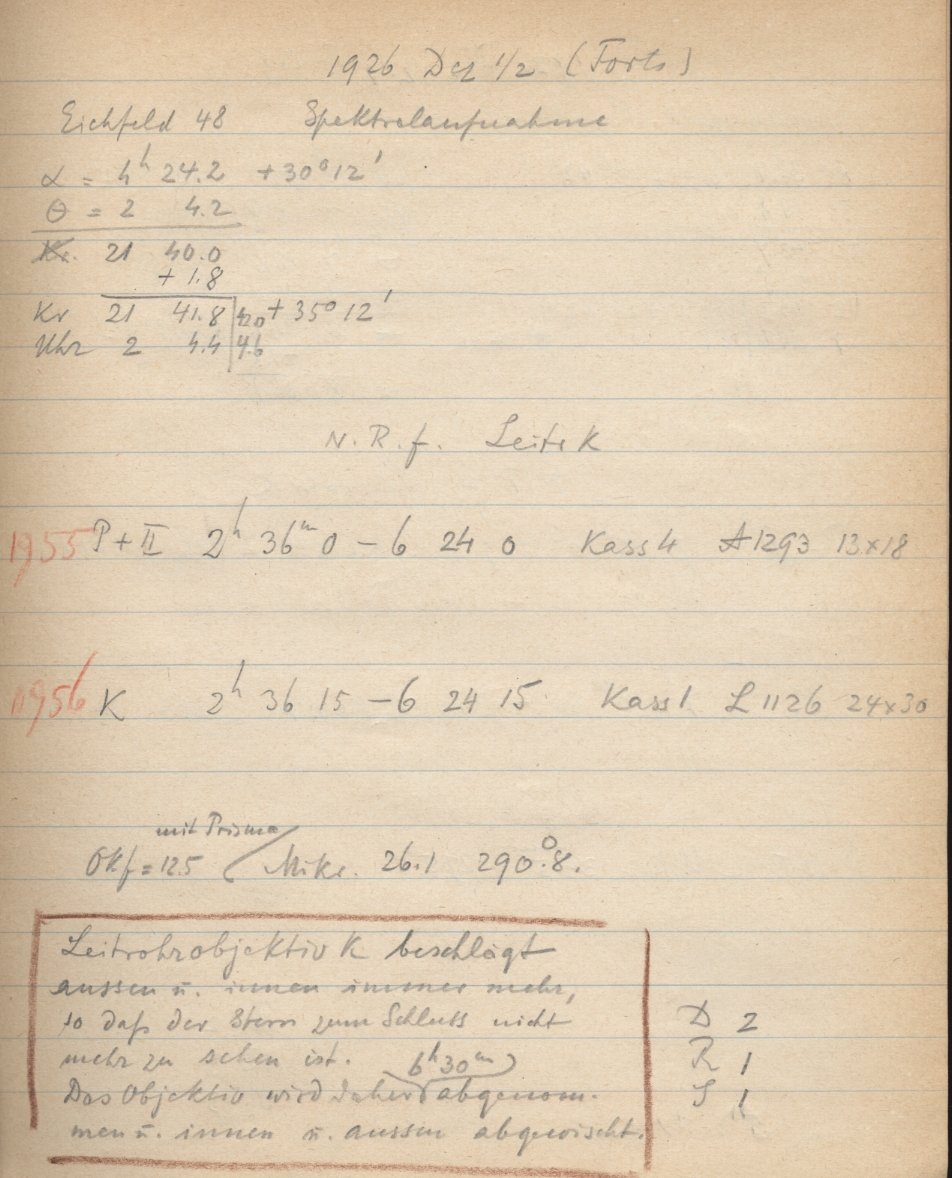 1926 Dez 1/2 (Forts)
Eichfeld 48 Spektralaufnahme
α = 4h 24.2 +30°12'
θ = 2 4.2
Kr. 21 40.0
+ 1.8
Kr 21 41.8 42.0 + 35°12'
Uhr 2 4.4 4.6
N.R.f. Leitr K
1955 P+II 2h 36m 0 – 6 24 0 Kass 4 A1293 13x18
1956 K 2h 36 15 – 6 24 15 Kass 1 L 1126 24x30
mit Prisma
Okf = 12.5 Mikr. 26.1 290°.8.
Leitrohrobjektiv K beschlägt
aussen u. innen immer mehr,
so daß der Stern zum Schluss nicht
mehr zu sehen ist. 6h30m
Das Objektiv wird daher abgenom-
men u. innen u. aussen abgewischt.
D 2
R 1
S 1